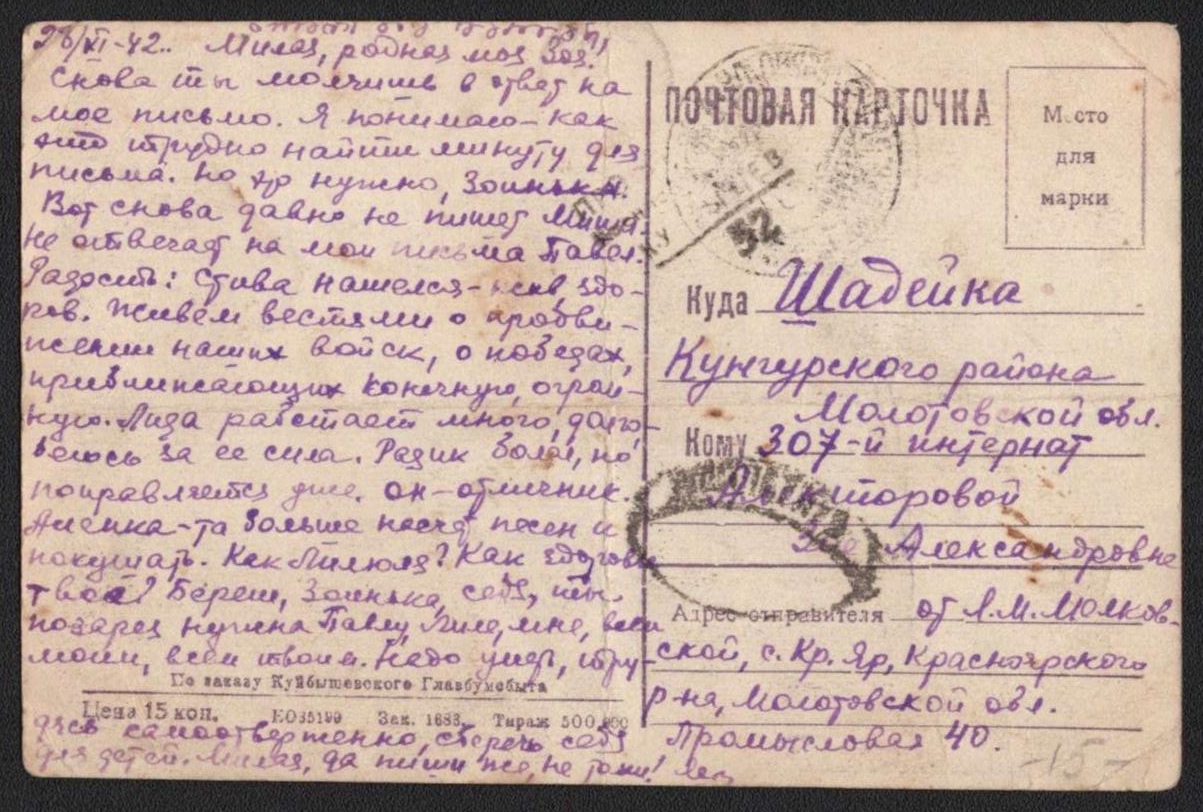 28/XI-42.. Милая, родная моя Зоя!
Снова ты молчишь в ответ на
мое письмо. Я понимаю – как
это трудно найти минуту для
письма. Но это нужно, Зоинька.
Вот снова давно не пишет Миша.
Не отвечает на мои письма Павел.
Радость: Стива нашелся – жив, здо-
ров. Живем вестями о продви-
жении наших войск, о победах,
приближающих конечную, огром-
ную. Лиза работает много, долго,
за ее сила. Радик болел, но
поправляется уже. Он – отличник.
Аленка-та больше насчет песен и
покушать. Как Лилюля? Как здоровье
твое? Береги, Зоинька, себя, ты
нужна Павлу, Лиле, мне, всем
моим, всем твоим. Надо уметь, тру-
дясь самоотверженно, сберечь себя
для детей. Милая, да пиши же, не томи!
По заказу Куйбышевского Главбумсбыта
Цена 15 коп. ЕО35199 Зак. 1683. Тираж 500.000
ПОЧТОВАЯ КАРТОЧКА
Место
для
марки
52
Куда Шадейка
Кунгурского района
Молотовской обл.
Кому 307-й интернат
Александровне
Адрес отправителя от Л.М. Мюлков-
ской, с. Кр. Яр, Красноярского
р-на, Молотовской обл.
Промысловая 40.
-15-